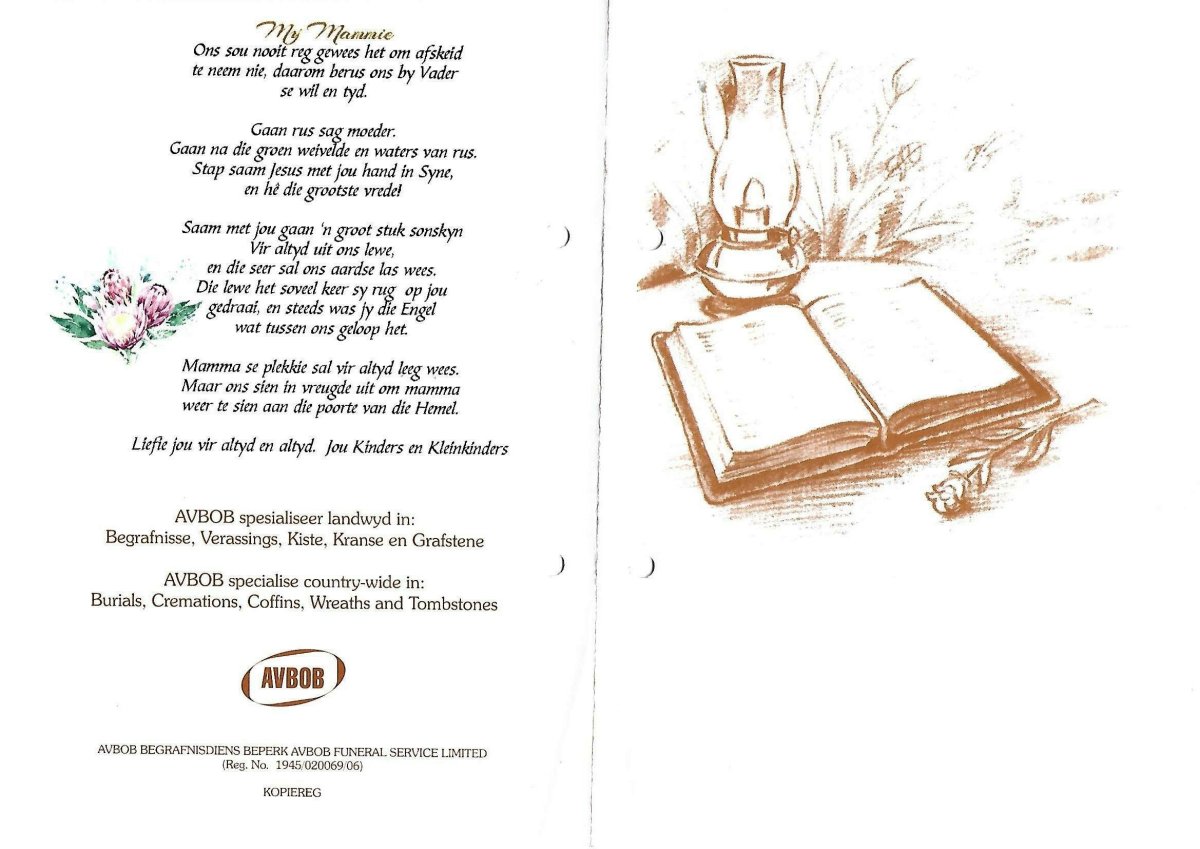 My Mammie
Ons sou nooit reg gewees het om afskeid
te neem nie, daarom berus ons by Vader
se wil en tyd.
Gaan rus sag moeder.
Gaan na die groen weivelde en waters van rus.
Stap saam Jesus met jou hand in Syne,
en hê die grootste vrede!
Saam met jou gaan 'n groot stuk sonskyn
Vir altyd uit ons lewe,
en die seer sal ons aardse las wees.
Die lewe het soveel keer sy rug op jou
gedraai, en steeds was jy die Engel
wat tussen ons geloop het.
Mamma se plekkie sal vir altyd leeg wees.
Maar ons sien in vreugde uit om mamma
weer te sien aan die poorte van die Hemel.
Liefie jou vir altyd en altyd. Jou Kinders en Kleinkinders
AVBOB spesialiseer landwyd in:
Begrafnisse, Verassings, Kiste, Kranse en Grafstene
AVBOB specialise country-wide in:
Burials, Cremations, Coffins, Wreaths and Tombstones
AVBOB
AVBOB BEGRAFNISDIENS BEPERK AVBOB FUNERAL SERVICE LIMITED
(Reg. No. 1945/020069/06)
KOPIEREG